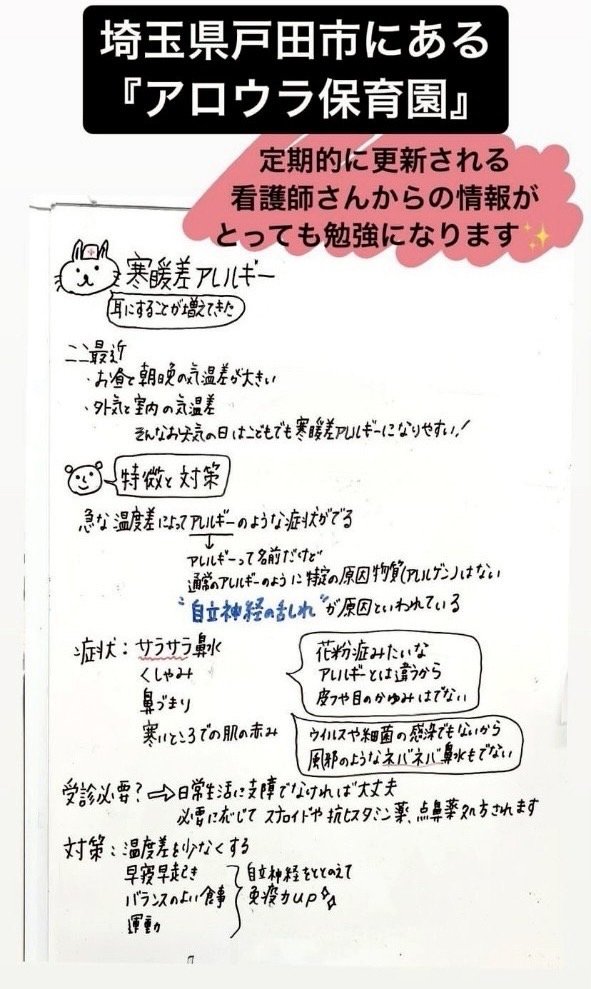 埼玉県戸田市にある
『アロウラ保育園』
定期的に更新される
看護師さんからの情報が
とっても勉強になります✨
寒暖差アレルギー
耳にすることが増えてきた
ここ最近
・お昼と朝晩の気温差が大きい
・外気と室内の気温差
そんなお天気の日はこどもでも寒暖差アレルギーになりやすい!
特徴と対策
急な温度差によってアレルギーのような症状がでる
アレルギーって名前だけど
通常のアレルギーのように特定の原因物質(アレルゲン)はない
"自立神経の乱れ"が原因といわれている
症状:サラサラ鼻水
くしゃみ
鼻づまり
寒いところでの肌の赤み
花粉症みたいな
アレルギーとは違うから
皮フや目のかゆみはでない
ウイルスや細菌の感染でもないから
風邪のようなネバネバ鼻水もでない
受診必要?⇨日常生活に支障でなければ大丈夫
必要に応じてステロイドや抗ヒスタミン薬、点鼻薬処方されます
対策:温度差を少なくする
早寝早起き
バランスのよい食事
運動
自立神経をととのえて
免疫力up